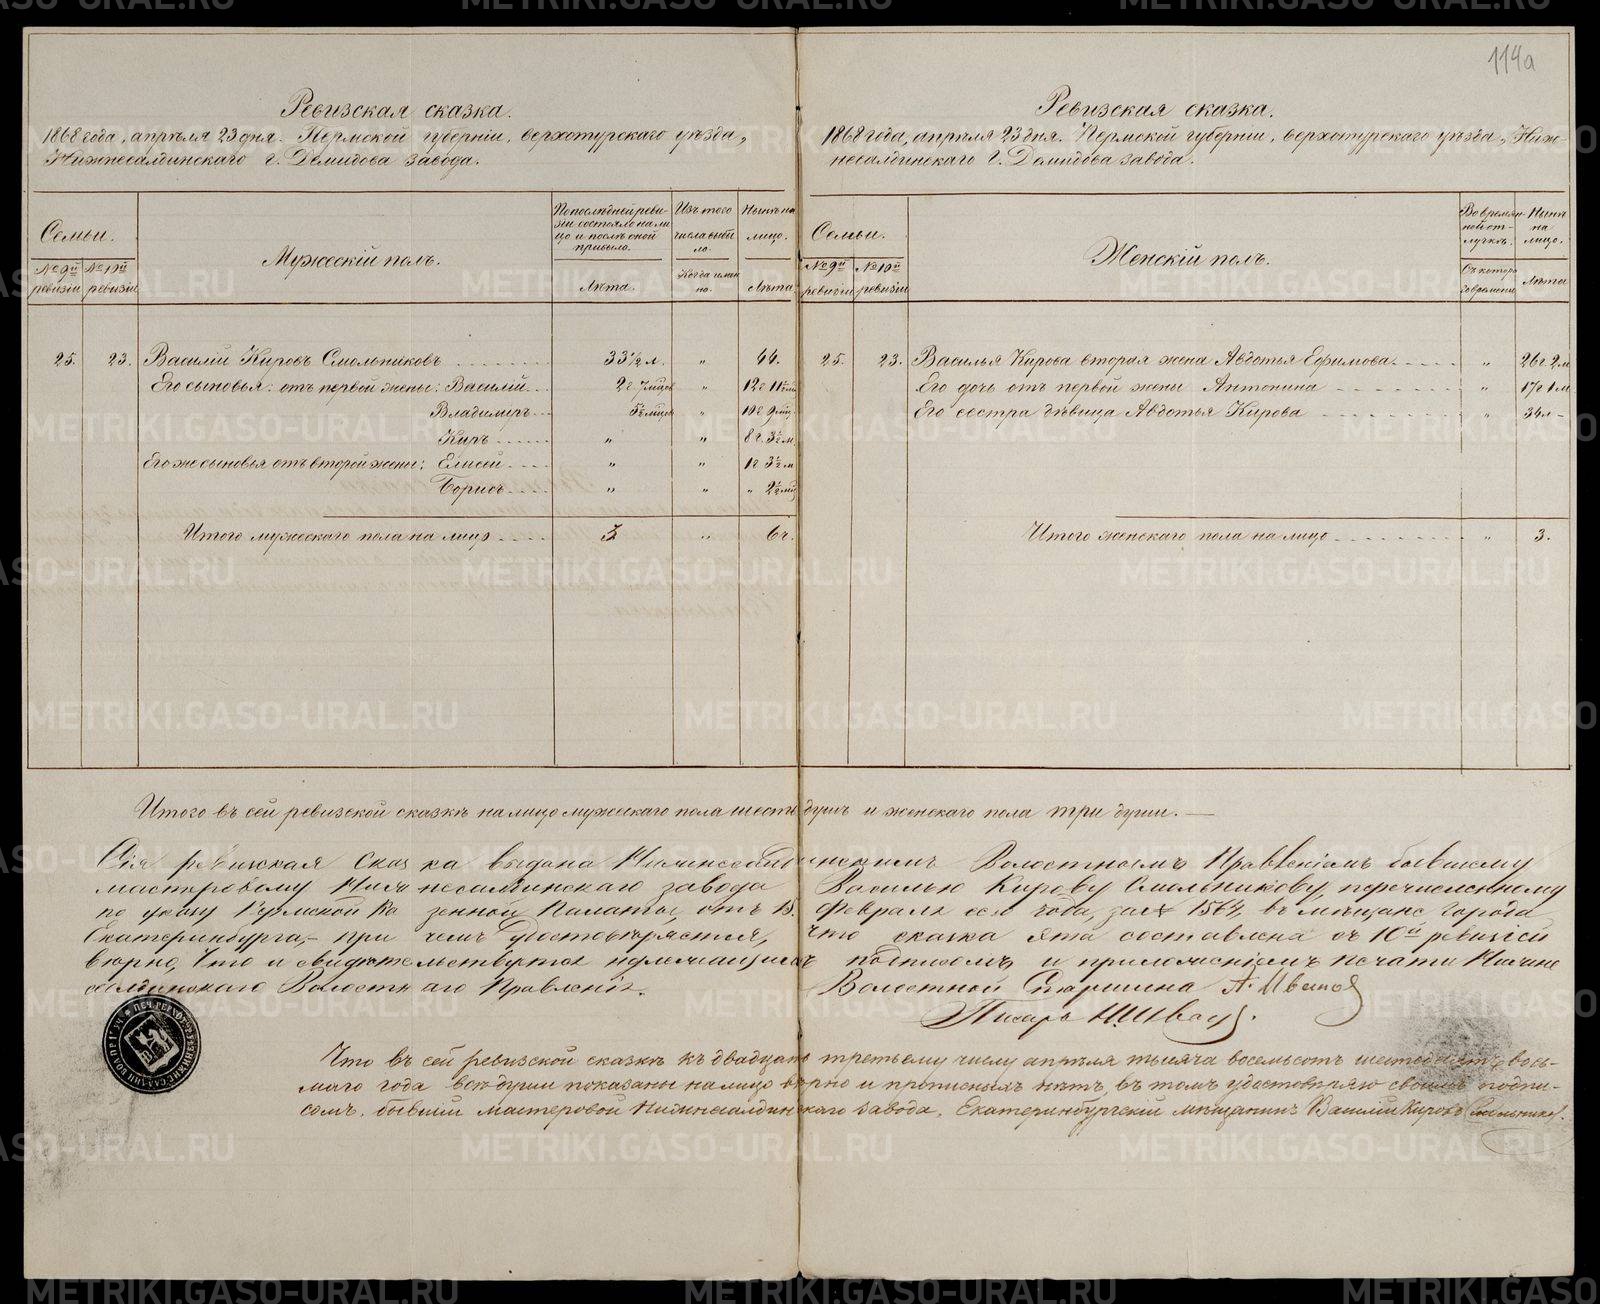 114а
Ревизская сказка.
1868 года, апрѣля 23 дня. Пермской губерніи, верхотурскаго уѣзда,
Нижнесалдинскаго г. Демидова завода.
Семьи.
№ 9й ревизіи
№ 10й ревизіи
Мужескій полъ.
По послѣдней реви-
зіи состояло на ли
цо и послѣ оной
прибыло.
Лѣта.
Изъ того
числа выбы
ло.
Когда имен
но.
Нынѣ на
лицо.
Лѣта
25. 23. Василій Кировъ Смольниковъ 33 1/2 л. " 44.
Его сыновья: отъ первой жены: Василій 2 г 7 мцов " 12 г 11 мц
Владимиръ 5 1/2 мцов " 10 г 9 мц
Киръ " " 8 г. 3 1/2 м
Его же сыновья отъ второй жены: Елисей " " 1 г 3 1/2 м
Борисъ " " " 2 1/2 мц
Итого мужескаго пола на лицо 3 " 6 ч.
Ревизская сказка.
1868 года, апрѣля 23 дня. Пермской губерніи, верхотурскаго уѣзда, Ниж-
несалдинскаго г. Демидова завода.
Семьи.
№ 9й ревизіи
№ 10й ревизіи
Женскій полъ.
Во времян-
ной от-
лучкѣ.
Съ котора
го времени
Нынѣ
на
лицо.
Лѣта
25. 23. Василья Кирова вторая жена Авдотья Ефимова " 26 г 2 м
Его дочь отъ первой жены Антонина " 17 г 1 м
Его сестра дѣвица Авдотья Кирова " 34 л -
Итого женскаго пола на лицо " 3.
Итого въ сей ревизской сказкѣ на лицо мужескаго пола шесть душъ и женскаго пола три души. —
Сія ревизская сказка выдана Нижнесалдинскимъ Волостнымъ Правленіемъ бывшему
мастеровому Нижнесалдинскаго завода Василью Кирову Смольникову, перечисленному
по указу Пермской Казенной Палаты, отъ 15 февраля сего года, за № 1564, въ мѣщане города
Екатеринбурга, – при чемъ удостовѣряется, что сказка эта составлена съ 10й ревизіей
вѣрно, что и свидѣтельствуется надлежащимъ подписомъ и приложеніемъ печати Нижне
салдинскаго Волостнаго Правленія. Волостной Старшина А. Ивановъ
Писарь
Что въ сей ревизской сказкѣ къ двадцать третьему числу апрѣля тысяча восемьсотъ шестьдесятъ вось-
маго года всѣ души показаны на лицо вѣрно и прописныхъ нѣтъ, въ томъ удостовѣряю своимъ подпи-
сомъ, бывшій мастеровой Нижнесалдинскаго завода, Екатеринбургскій мѣщанинъ Василій Кировъ Смольниковъ.
METRIKI.GASO-URAL.RU